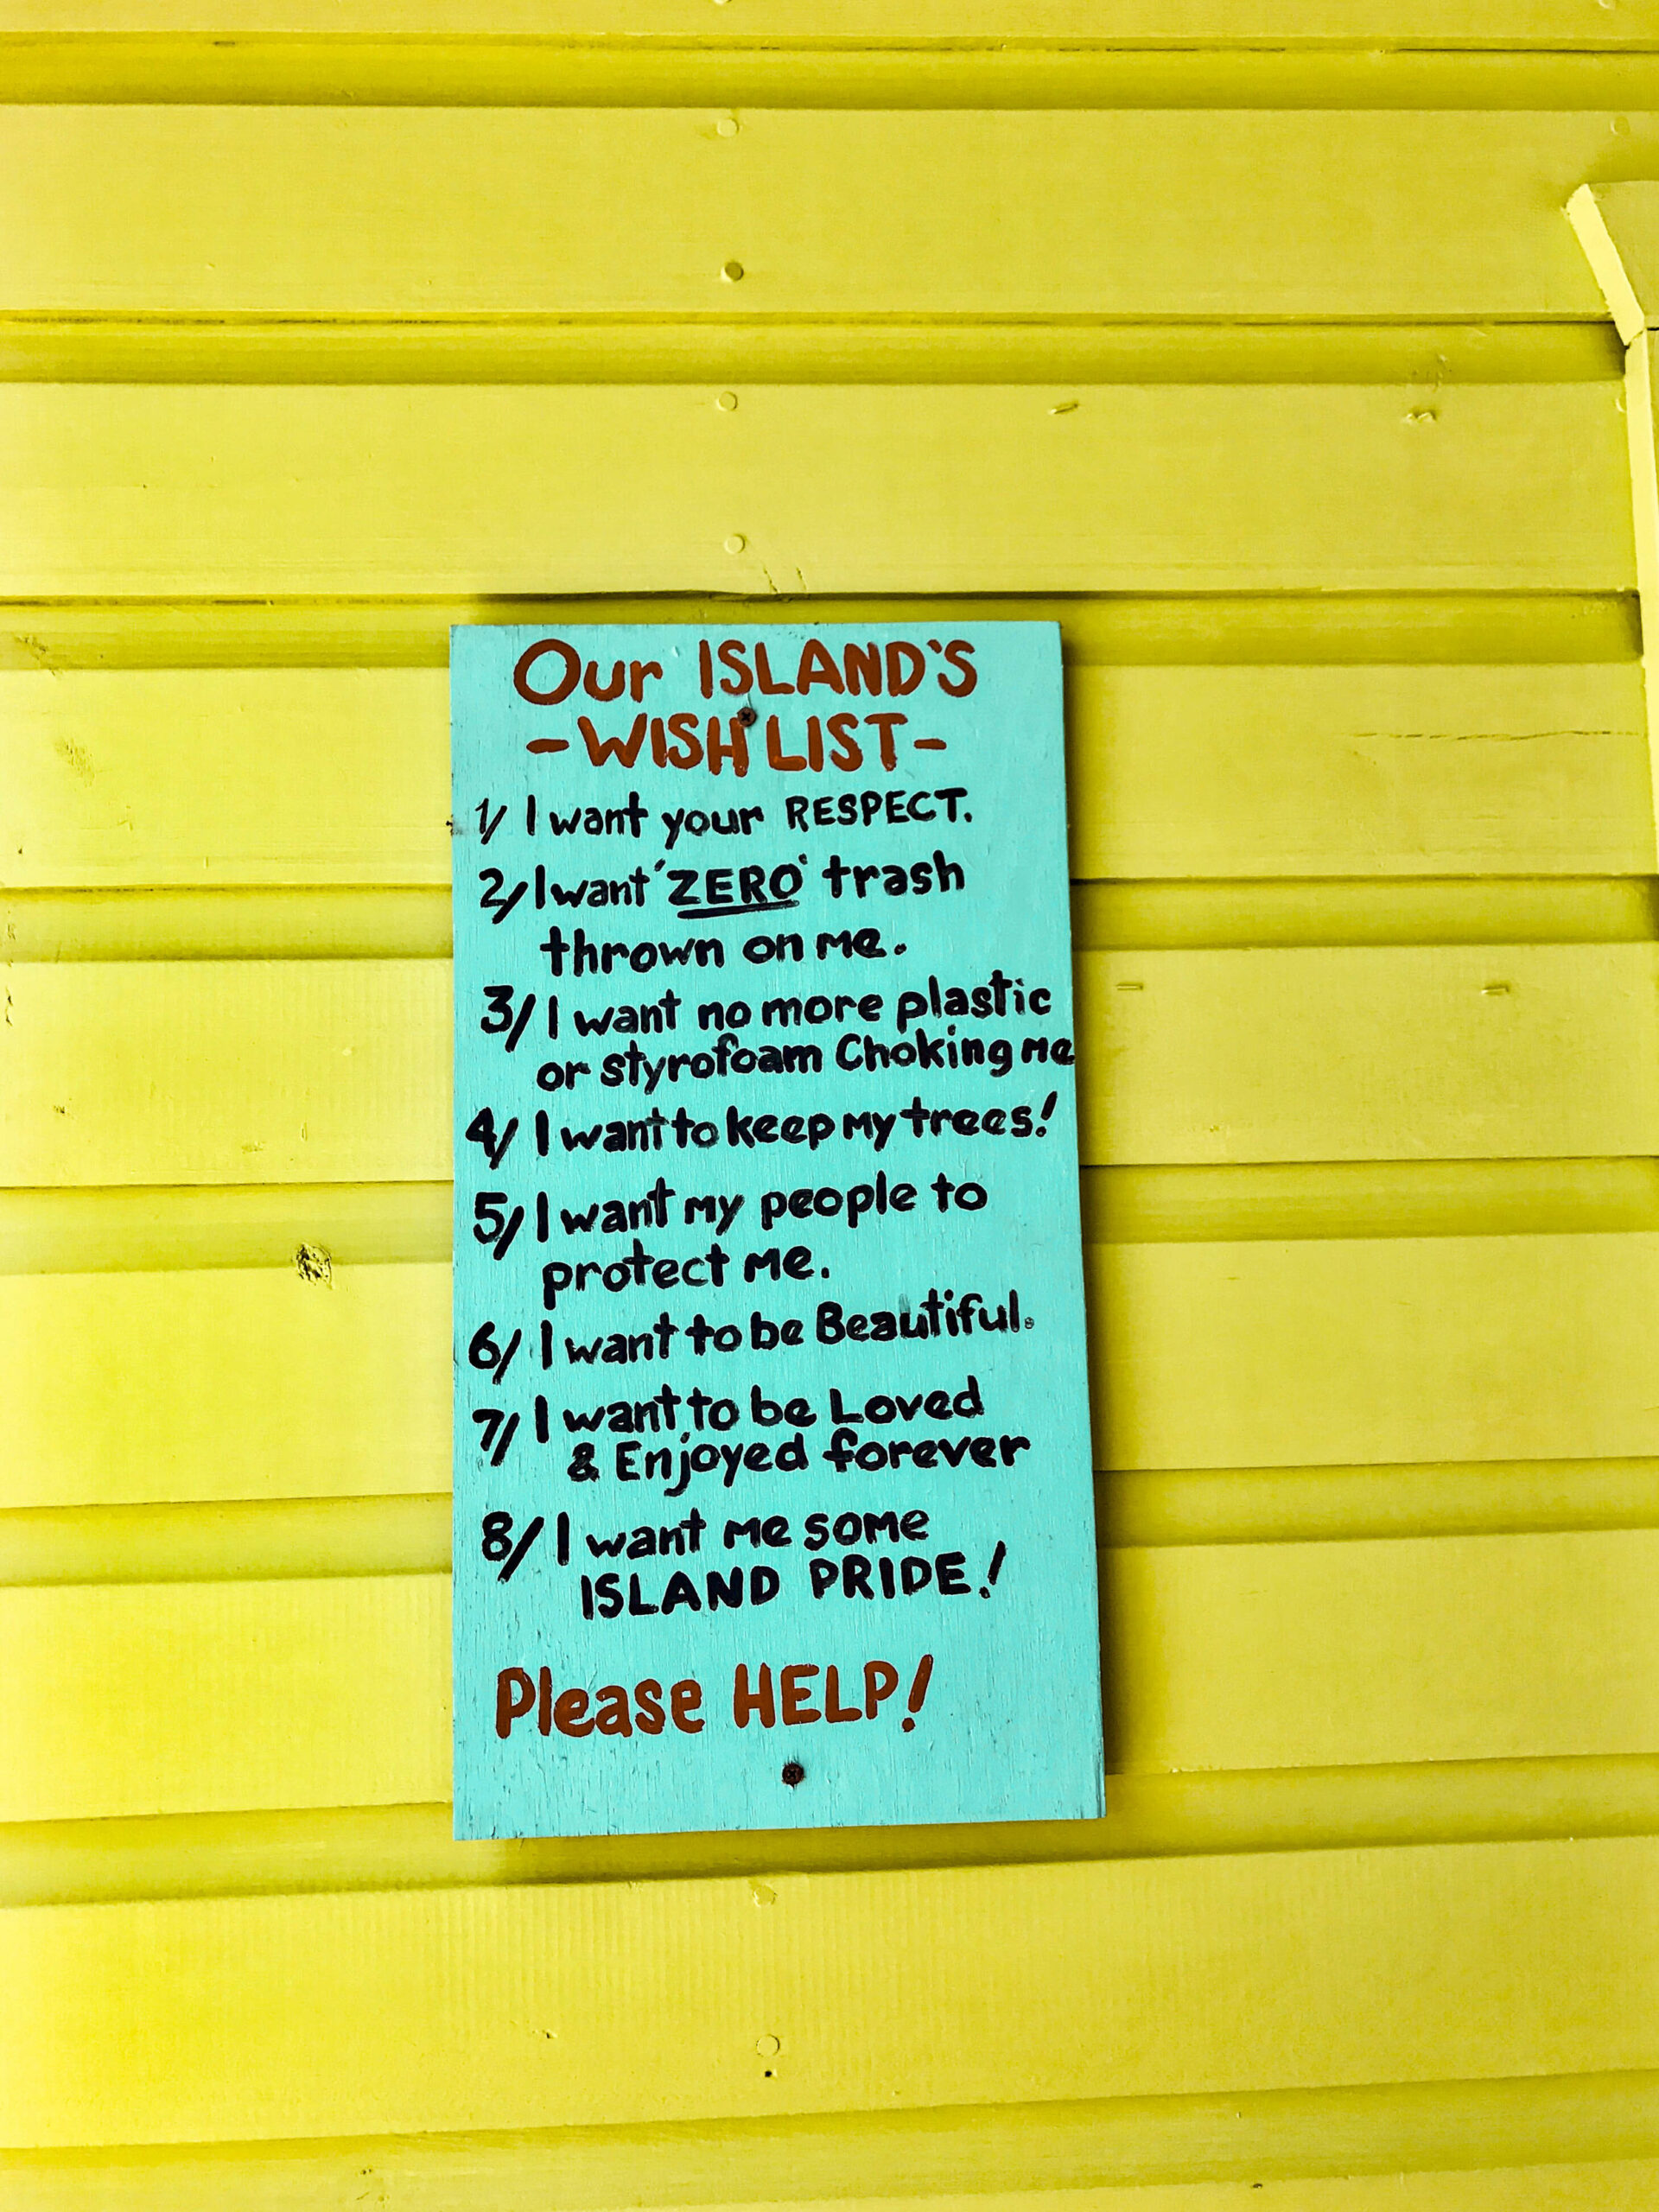 Our ISLAND'S
-WISH LIST-
1/ I want your RESPECT.
2/ I want 'ZERO' trash
thrown on me.
3/ I want no more plastic
or styrofoam Choking me
4/ I want to keep my trees!
5/ I want my people to
protect me.
6/ I want to be Beautiful.
7/ I want to be Loved
& Enjoyed forever
8/ I want me some
ISLAND PRIDE!
Please HELP!